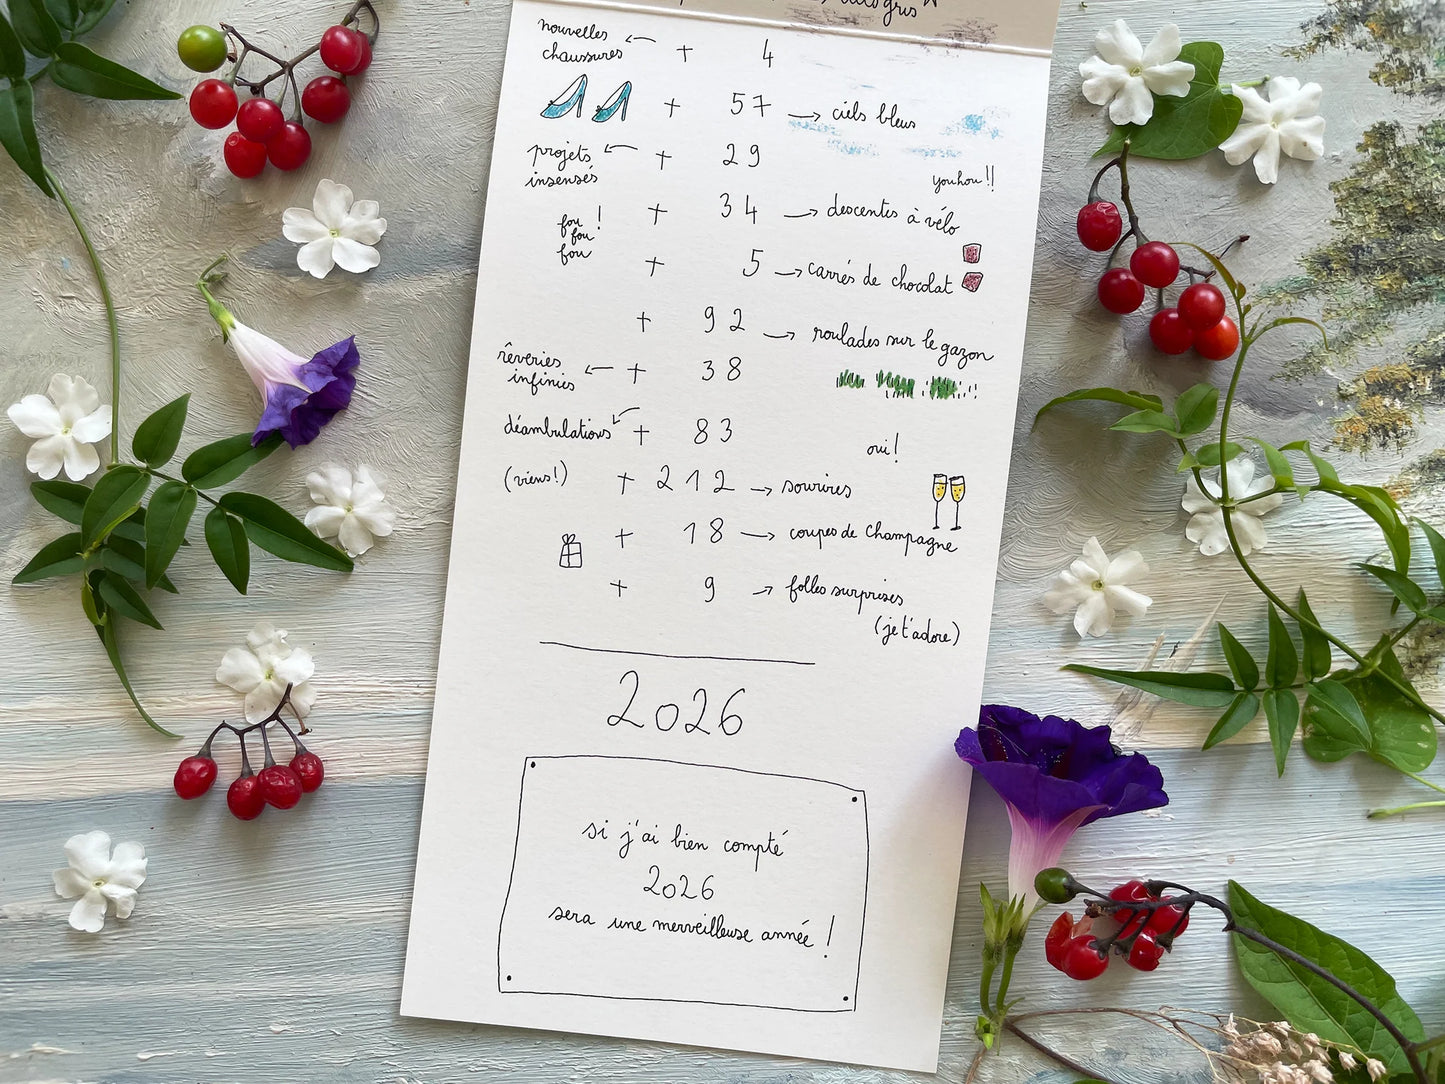 nouvelles
chaussures ← + 4
+ 57 → ciels bleus
projets ← + 29
insensés
youhou !!
+ 34 → descentes à vélo
fou !
fou
fou
+ 5 → carrés de chocolat
+ 92 → roulades sur le gazon
rêveries
infinies ← + 38
déambulations ← + 83
oui !
(viens !) + 212 → sourires
+ 18 → coupes de champagne
+ 9 → folles surprises
(je t'adore)
2026
si j'ai bien compté
2026
sera une merveilleuse année !